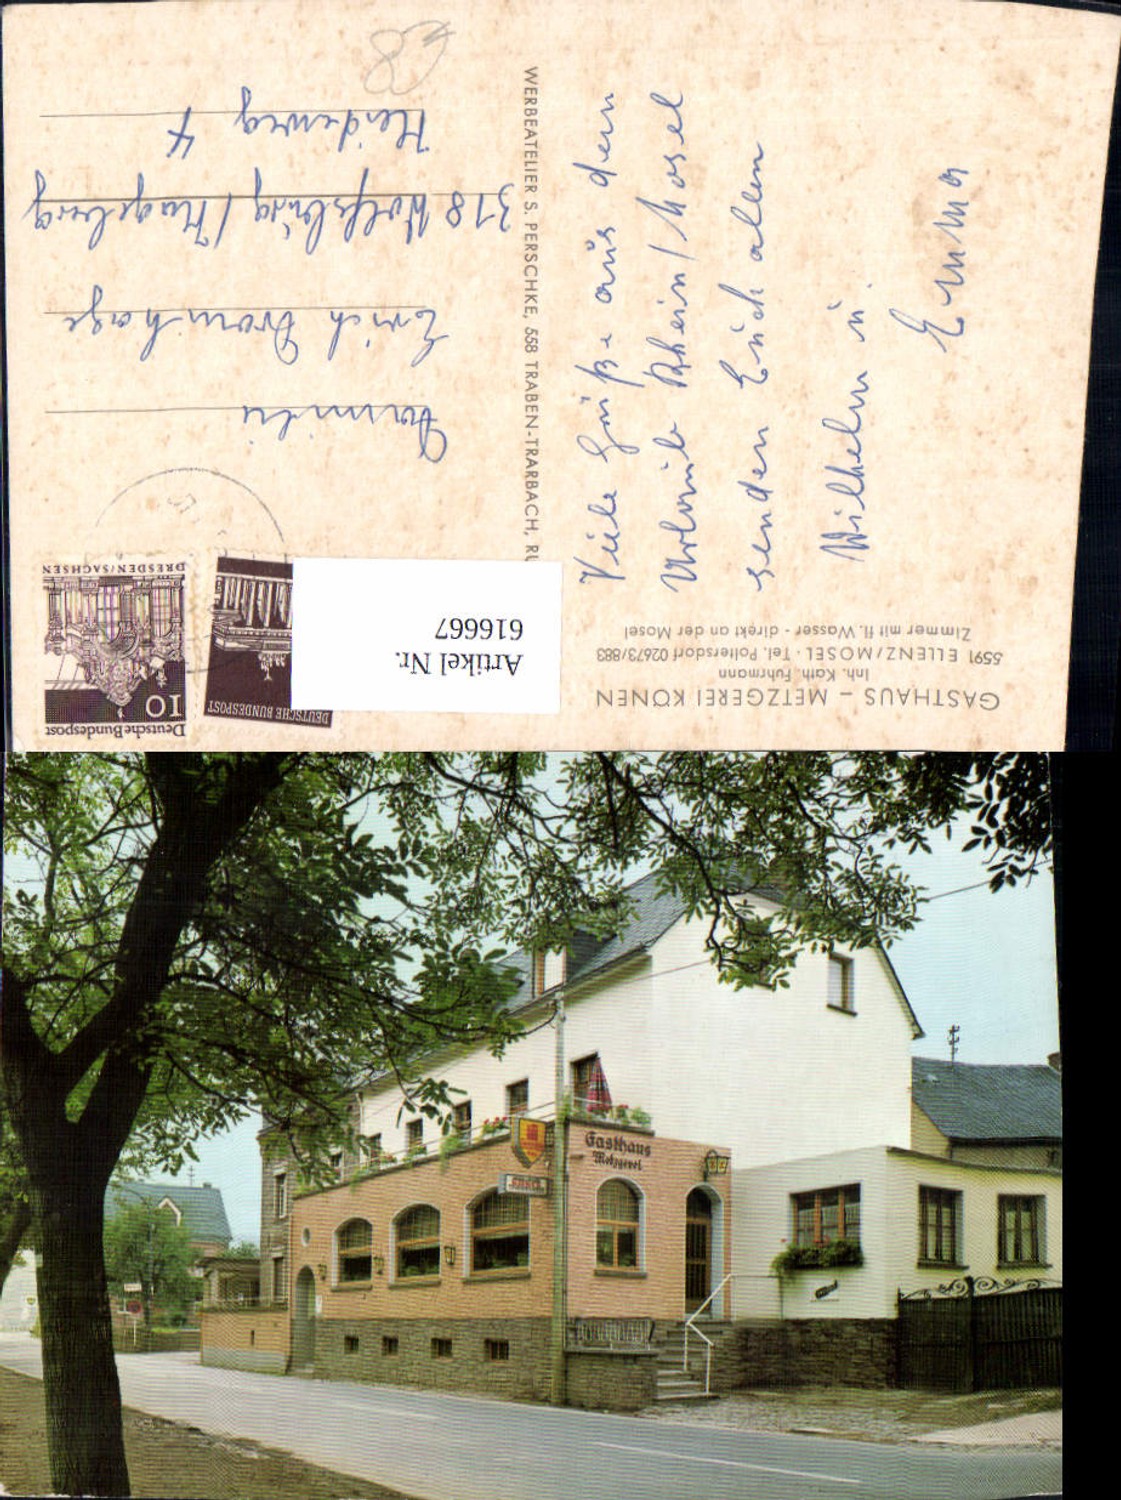 GASTHAUS – METZGEREI KÖNEN
Inh. Kath. Fuhrmann
5591 ELLENZ/MOSEL · Tel. Poltersdorf 02673/883
Zimmer mit fl. Wasser - direkt an der Mosel
Viele Grüße aus dem
Urlaub Rhein/Mosel
senden Euch allen
Wilhelm u.
Emma
WERBEATELIER S. PERSCHKE, 558 TRABEN-TRARBACH, RU
Artikel Nr.
616667
DEUTSCHE BUNDESPOST
Deutsche Bundespost
10
DRESDEN/SACHSEN
Familie
Erich
318 Wolfsburg/
Heideweg 4
Gasthaus
Metzgerei